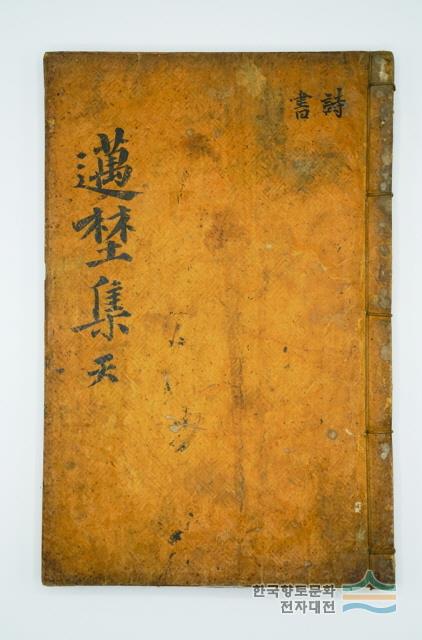 詩
書
邁埜集 天
한국향토문화
전자대전